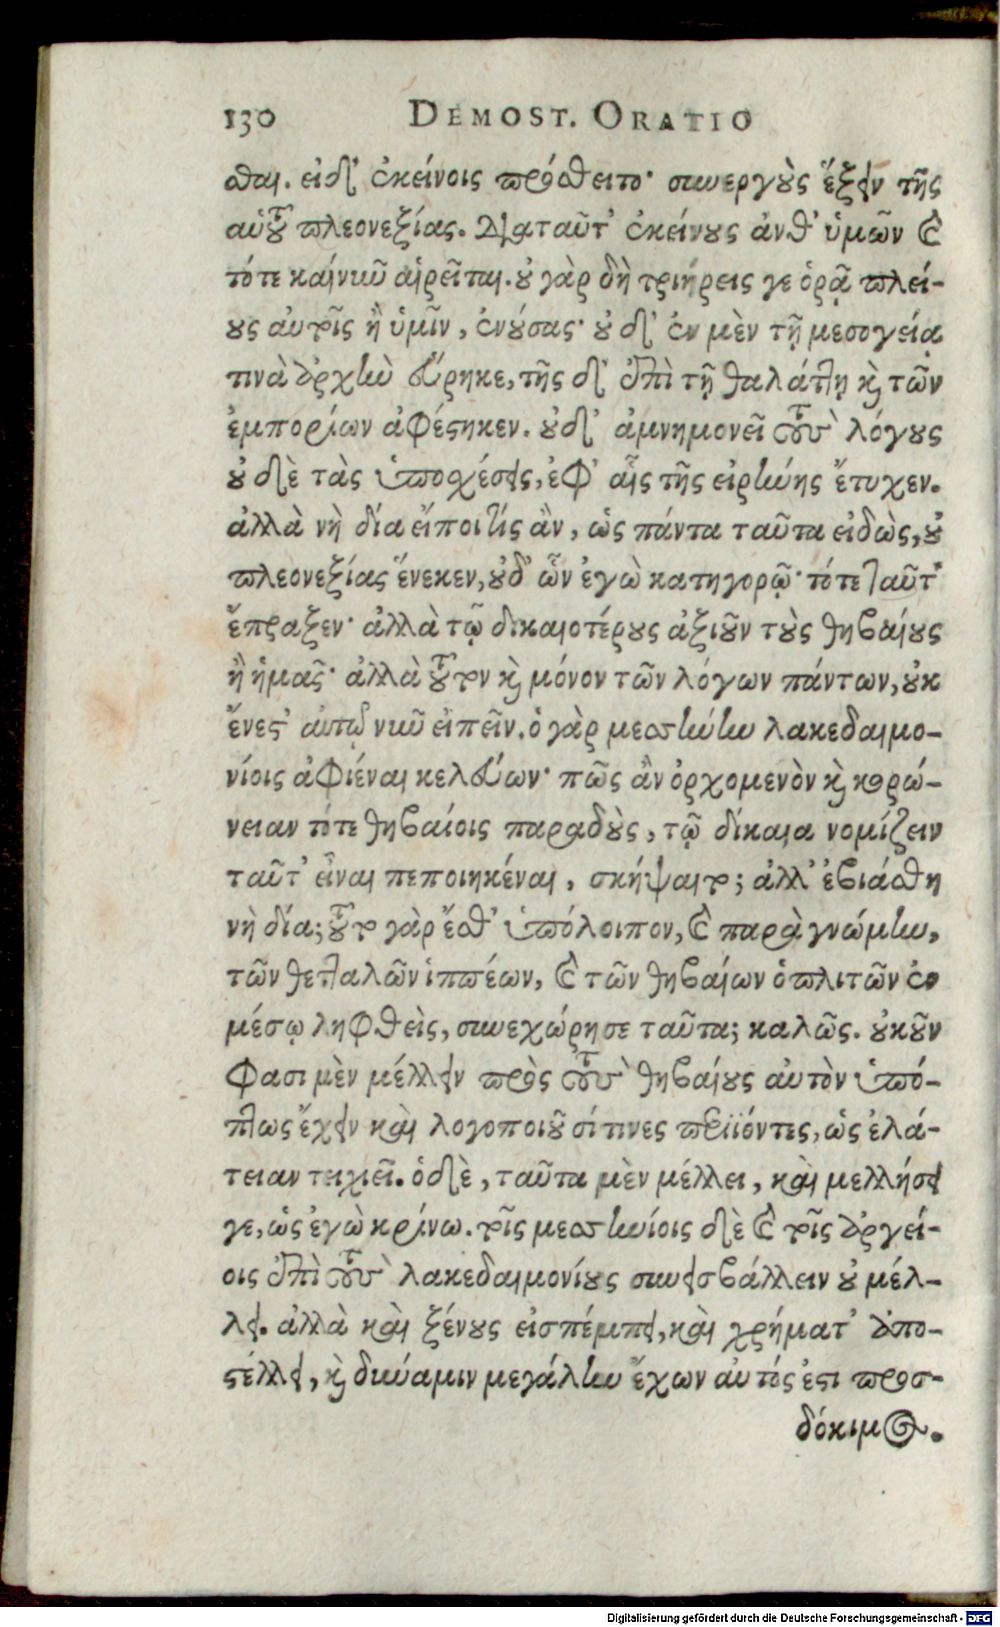 130 DEMOST. ORATIO
σθαι. εἰ δ' ἐκείνοις πρόσθειτο· συνεργοὺς ἕξειν τῆς
αὑτοῦ πλεονεξίας. Διαταῦτ' ἐκείνους ἀνθ' ὑμῶν καὶ
τότε καὶ νῦν αἱρεῖται. οὐ γὰρ δὴ τριήρεις γε ὁρᾷ πλεί-
ους αὐτοῖς ἢ ὑμῖν, ἐνούσας· οὐδ' ἐν μὲν τῇ μεσογείᾳ
τινὰ ἀρχὴν εὕρηκε, τῆς δ' ἐπὶ τῇ θαλάττῃ καὶ τῶν
ἐμπορίων ἀφέστηκεν. οὐδ' ἀμνημονεῖ τοὺς λόγους
οὐδὲ τὰς ὑποσχέσεις, ἐφ' αἷς τῆς εἰρήνης ἔτυχεν.
ἀλλὰ νὴ δία εἴποι τίς ἂν, ὡς πάντα ταῦτα εἰδὼς, οὐ
πλεονεξίας ἕνεκεν, οὐδ' ὧν ἐγὼ κατηγορῷ· τότε ταῦτ'
ἔπραξεν· ἀλλὰ τῷ δικαιοτέρους ἀξιοῦν τοὺς θηβαίους
ἢ ἡμᾶς· ἀλλὰ τοῦτον καὶ μόνον τῶν λόγων πάντων, οὐκ
ἔνεστ' αὐτῷ νῦν εἰπεῖν. ὁ γὰρ μεσσήνην λακεδαιμο-
νίοις ἀφιέναι κελεύων· πῶς ἂν ὀρχομενὸν καὶ κορώ-
νειαν τότε θηβαίοις παραδοὺς, τῷ δίκαια νομίζειν
ταῦτ' εἶναι πεποιηκέναι, σκήψαιτο; ἀλλ' ἐβιάσθη
νὴ δία; τοῦτο γὰρ ἔσθ' ὑπόλοιπον, καὶ παρὰ γνώμην,
τῶν θετταλῶν ἱππέων, καὶ τῶν θηβαίων ὁπλιτῶν ἐν
μέσῳ ληφθεὶς, συνεχώρησε ταῦτα; καλῶς. οὐκοῦν
φασι μὲν μέλλειν πρὸς τοὺς θηβαίους αὐτὸν ὑπό-
πτως ἔχειν καὶ λογοποιοῦσί τινες περιϊόντες, ὡς ἐλά-
τειαν τειχιεῖ. ὁ δὲ, ταῦτα μὲν μέλλει, καὶ μελλήσει
γε, ὡς ἐγὼ κρίνω. τοῖς μεσσηνίοις δὲ καὶ τοῖς ἀργεί-
οις ἐπὶ τοὺς λακεδαιμονίους συνεισβάλλειν οὐ μέλ-
λει. ἀλλὰ καὶ ξένους εἰσπέμπει, καὶ χρήματ' ἀπο-
στέλλει, καὶ δύναμιν μεγάλην ἔχων αὐτός ἐστι προσ-
δόκιμος.
Digitalisierung gefördert durch die Deutsche Forschungsgemeinschaft - DFG